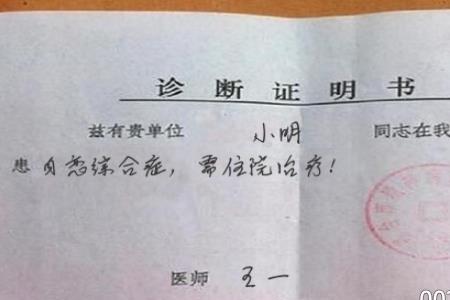 诊断证明书
兹有贵单位 小明 同志在我
患 自恋综合症，需住院治疗！
医师 王一